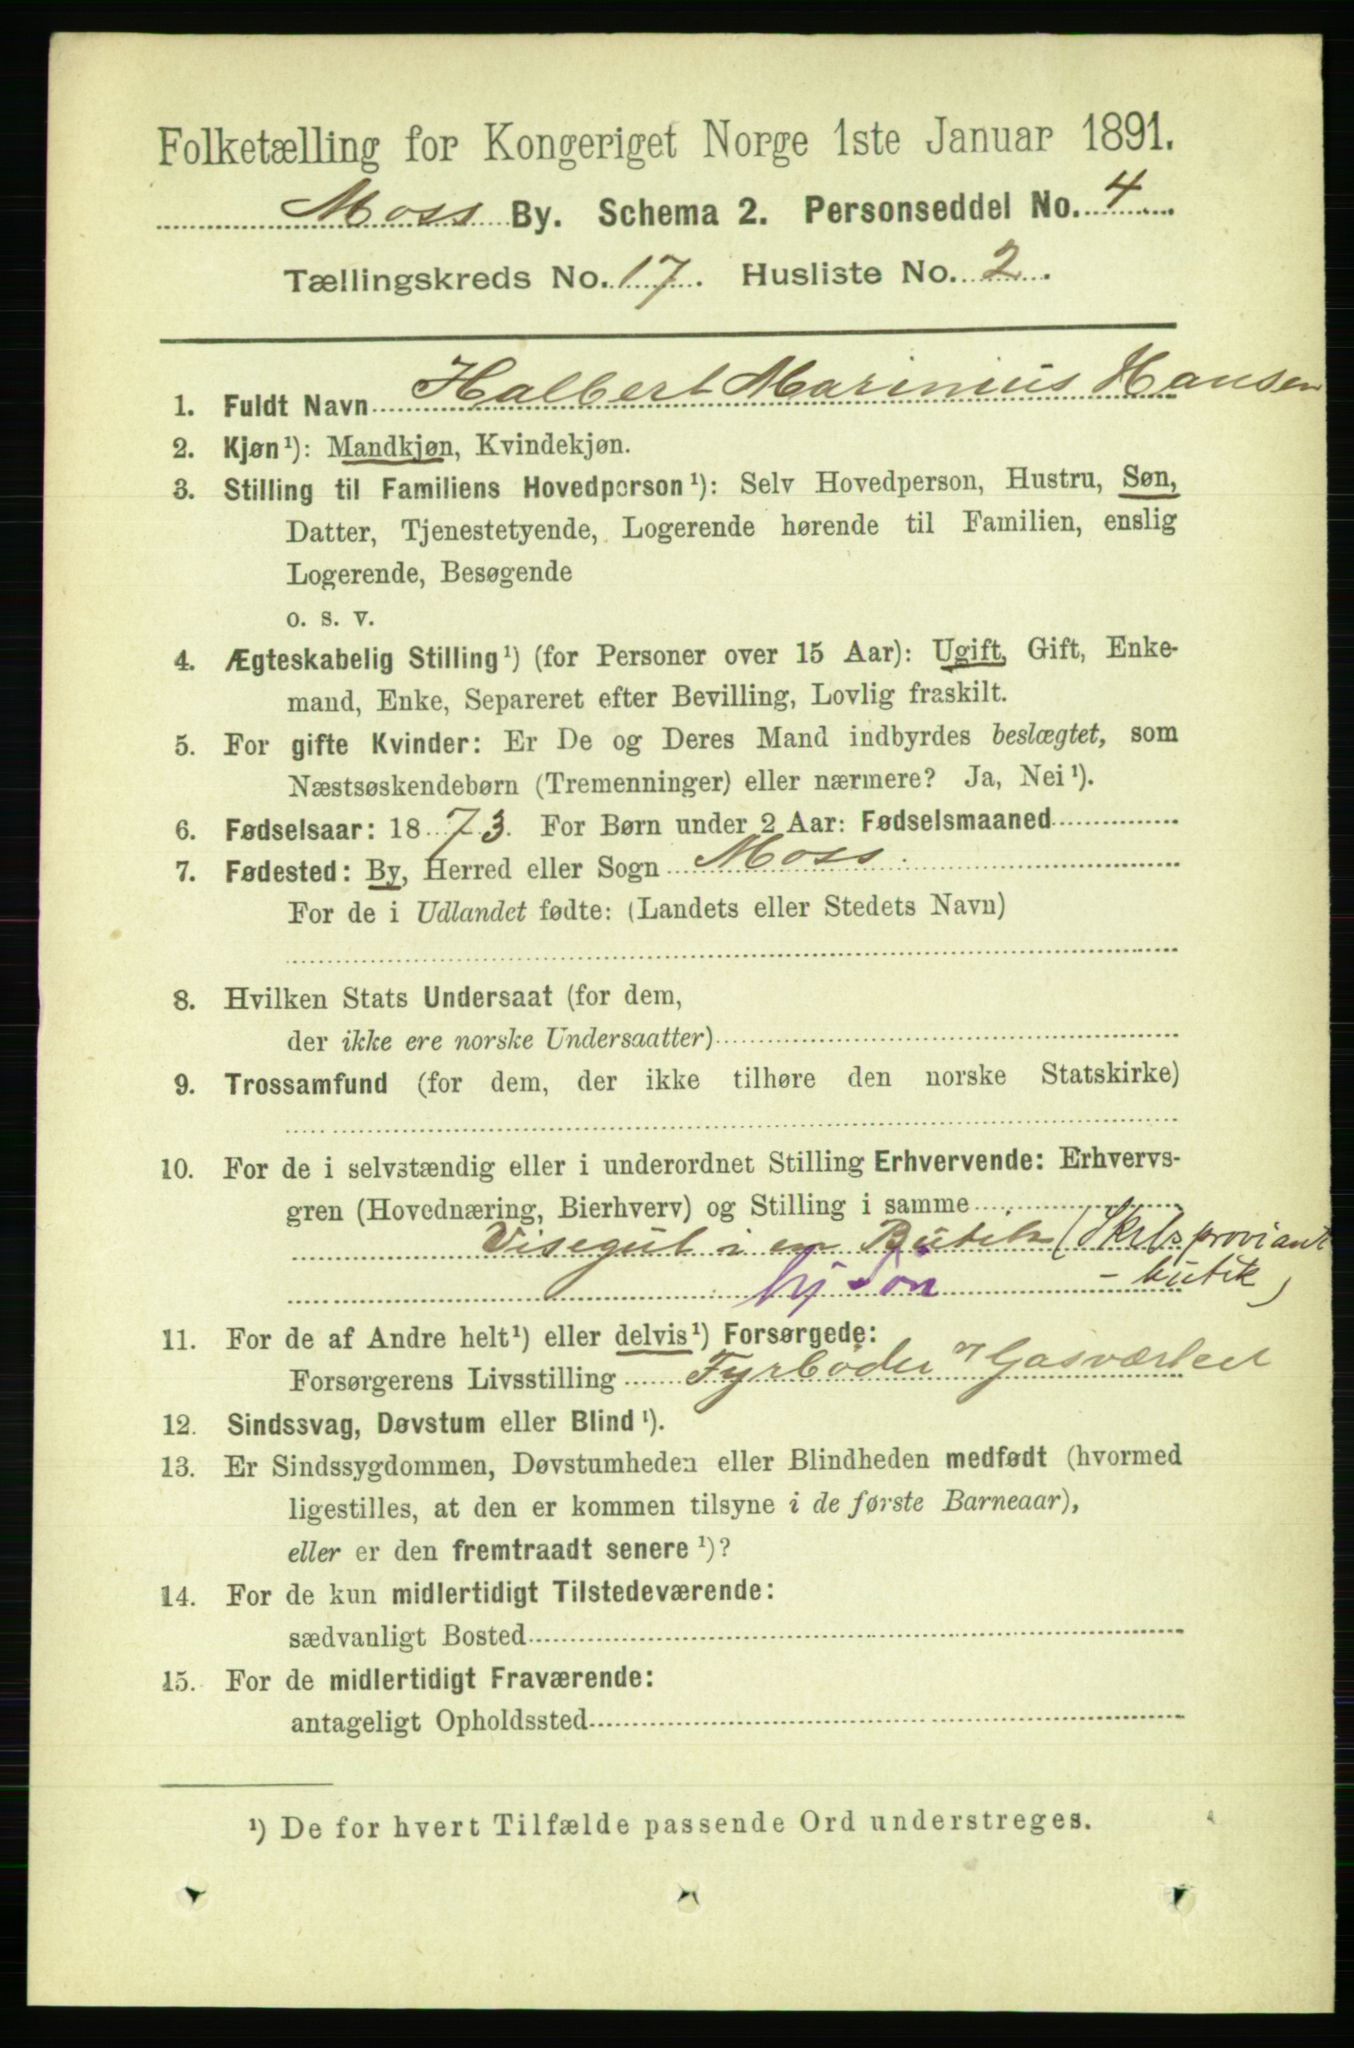 Folketælling for Kongeriget Norge 1ste Januar 1891.
Moss By. Schema 2. Personseddel No. 4
Tællingskreds No. 17. Husliste No. 2.
1. Fuldt Navn Halbert Marinius Hansen
2. Kjøn¹): Mandkjøn, Kvindekjøn.
3. Stilling til Familiens Hovedperson¹): Selv Hovedperson, Hustru, Søn,
Datter, Tjenestetyende, Logerende hørende til Familien, enslig
Logerende, Besøgende
o. s. v.
4. Ægteskabelig Stilling¹) (for Personer over 15 Aar): Ugift, Gift, Enke-
mand, Enke, Separeret efter Bevilling, Lovlig fraskilt.
5. For gifte Kvinder: Er De og Deres Mand indbyrdes beslægtet, som
Næstsøskendebørn (Tremenninger) eller nærmere? Ja, Nei¹).
6. Fødselsaar: 1873. For Børn under 2 Aar: Fødselsmaaned
7. Fødested: By, Herred eller Sogn Moss
For de i Udlandet fødte: (Landets eller Stedets Navn)
8. Hvilken Stats Undersaat (for dem,
der ikke ere norske Undersaatter)
9. Trossamfund (for dem, der ikke tilhøre den norske Statskirke)
10. For de i selvstændig eller i underordnet Stilling Erhvervende: Erhvervs-
gren (Hovednæring, Bierhverv) og Stilling i samme
Visegut i en Butik (Skibsproviant
- butik)
11. For de af Andre helt¹) eller delvis¹) Forsørgede:
Forsørgerens Livsstilling Fyrbøder v/ Gasværket
12. Sindssvag, Døvstum eller Blind¹).
13. Er Sindssygdommen, Døvstumheden eller Blindheden medfødt (hvormed
ligestilles, at den er kommen tilsyne i de første Barneaar),
eller er den fremtraadt senere¹)?
14. For de kun midlertidigt Tilstedeværende:
sædvanligt Bosted
15. For de midlertidigt Fraværende:
antageligt Opholdssted
¹) De for hvert Tilfælde passende Ord understreges.